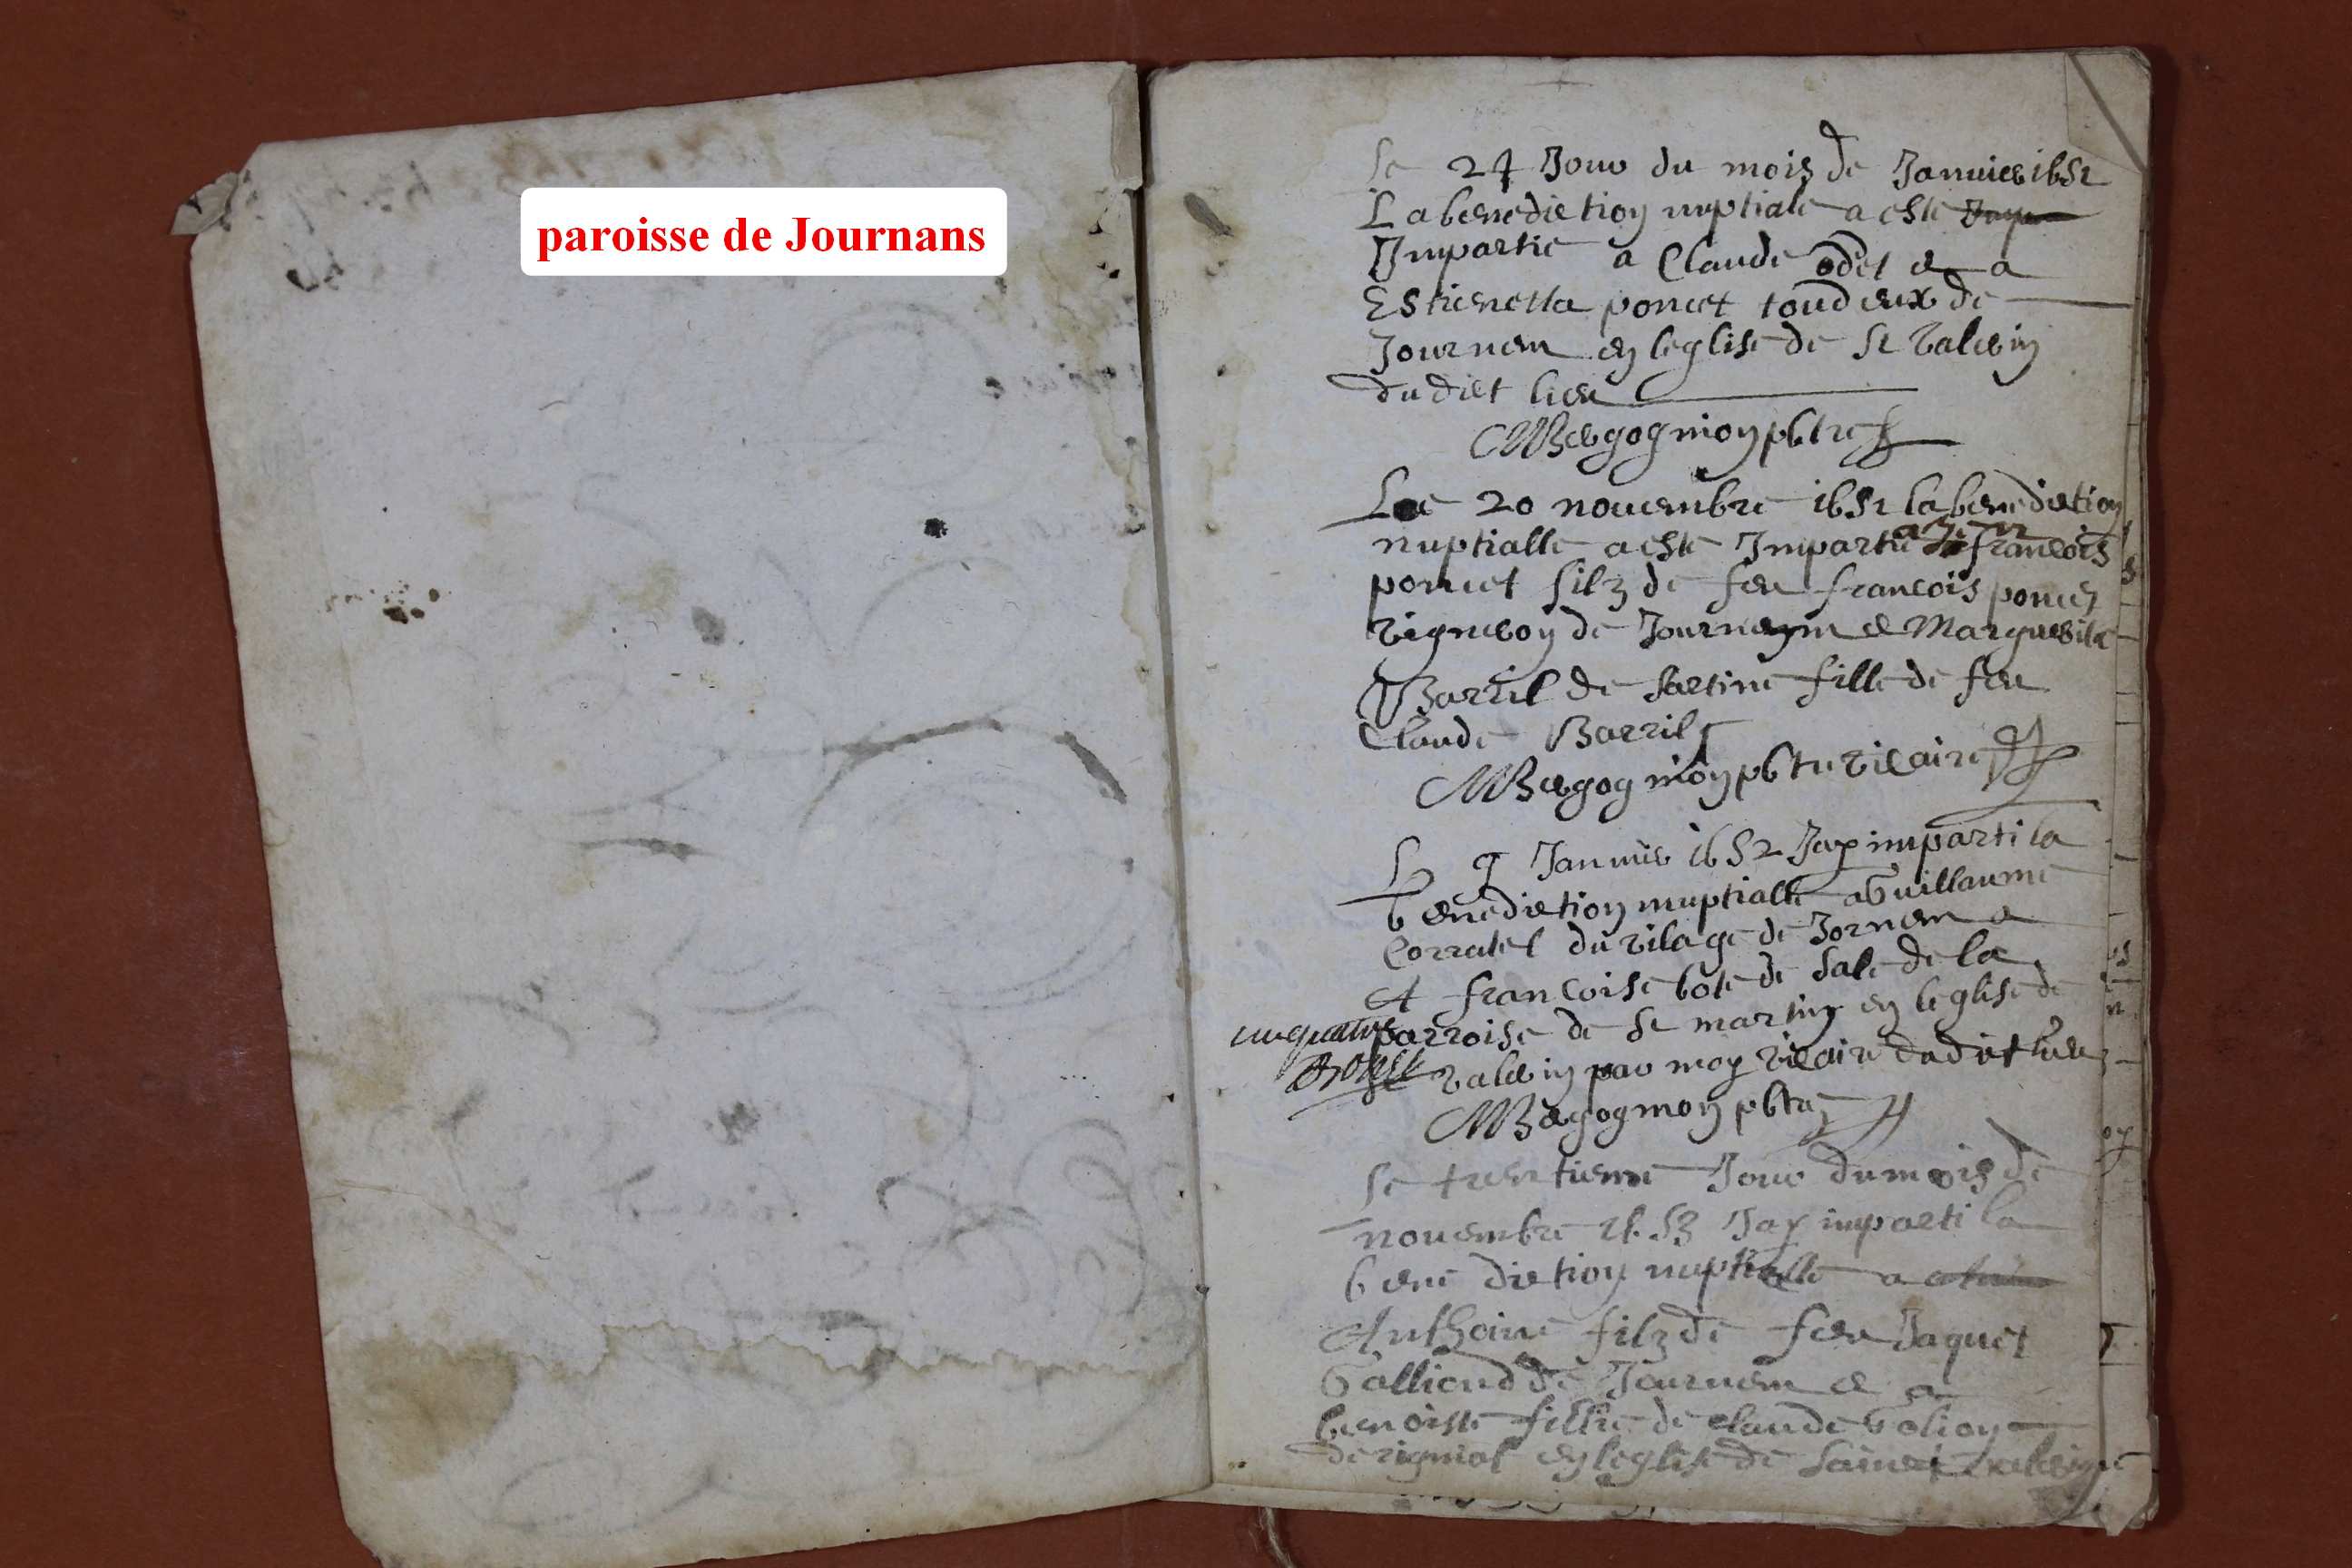 paroisse de Journans
Le 24 Jour du mois de Januier 1651
La benediction nuptiale a esté
Impartie a Claude odet et a
Estienetta poncet toud deux de
Journem en leglise de St Valerin
dudict lieu
MBergognion pbtre
Le 20 nouembre 1651 la benediction
nuptialle a esté Impartie a francois
poncet filz de feu francois poncet
vigneron de Journem et Marguerite
Barril de fartine fille de feu
Claude Barril
MBergognion pbtre vicaire
Le 9 Januier 1652 Jay imparti la
benediction nuptialle a Guillaume
Corratel du vilage de Jornem a
et francoise bole de sale de la
parroise de St martin en leglise de
valerin par moy vicaire dudict lieu
MBergognion pbtre
Le trentieme Jour du mois de
nouembre 1653 Jay imparti la
benediction nuptialle a
Anthoine filz de feu Jaquet
Galliond de Journem et a
benoiste fillie de claude Golion
de rignat en leglise de Sainct Valerin